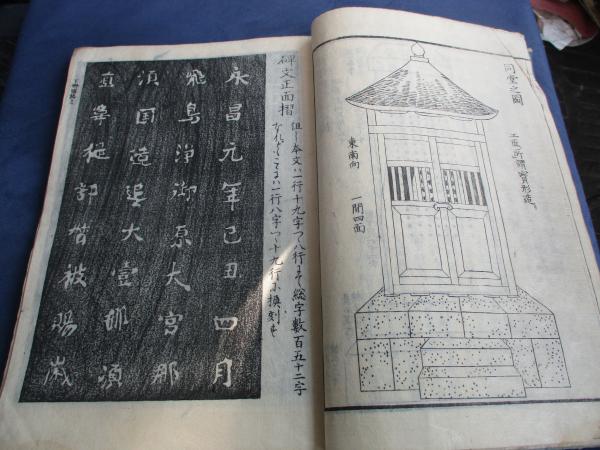 同堂之圖
工匠所謂寶形造
東南向 一間四面
碑文正面摺
但し本文ハ一行十九字つゝ八行まて総字数百五十二字
一行八字つゝ十九行に換刻も
永昌元年己丑四月
飛鳥浄御原大宮那
須国造追大壹那須
直韋提評督被賜歳